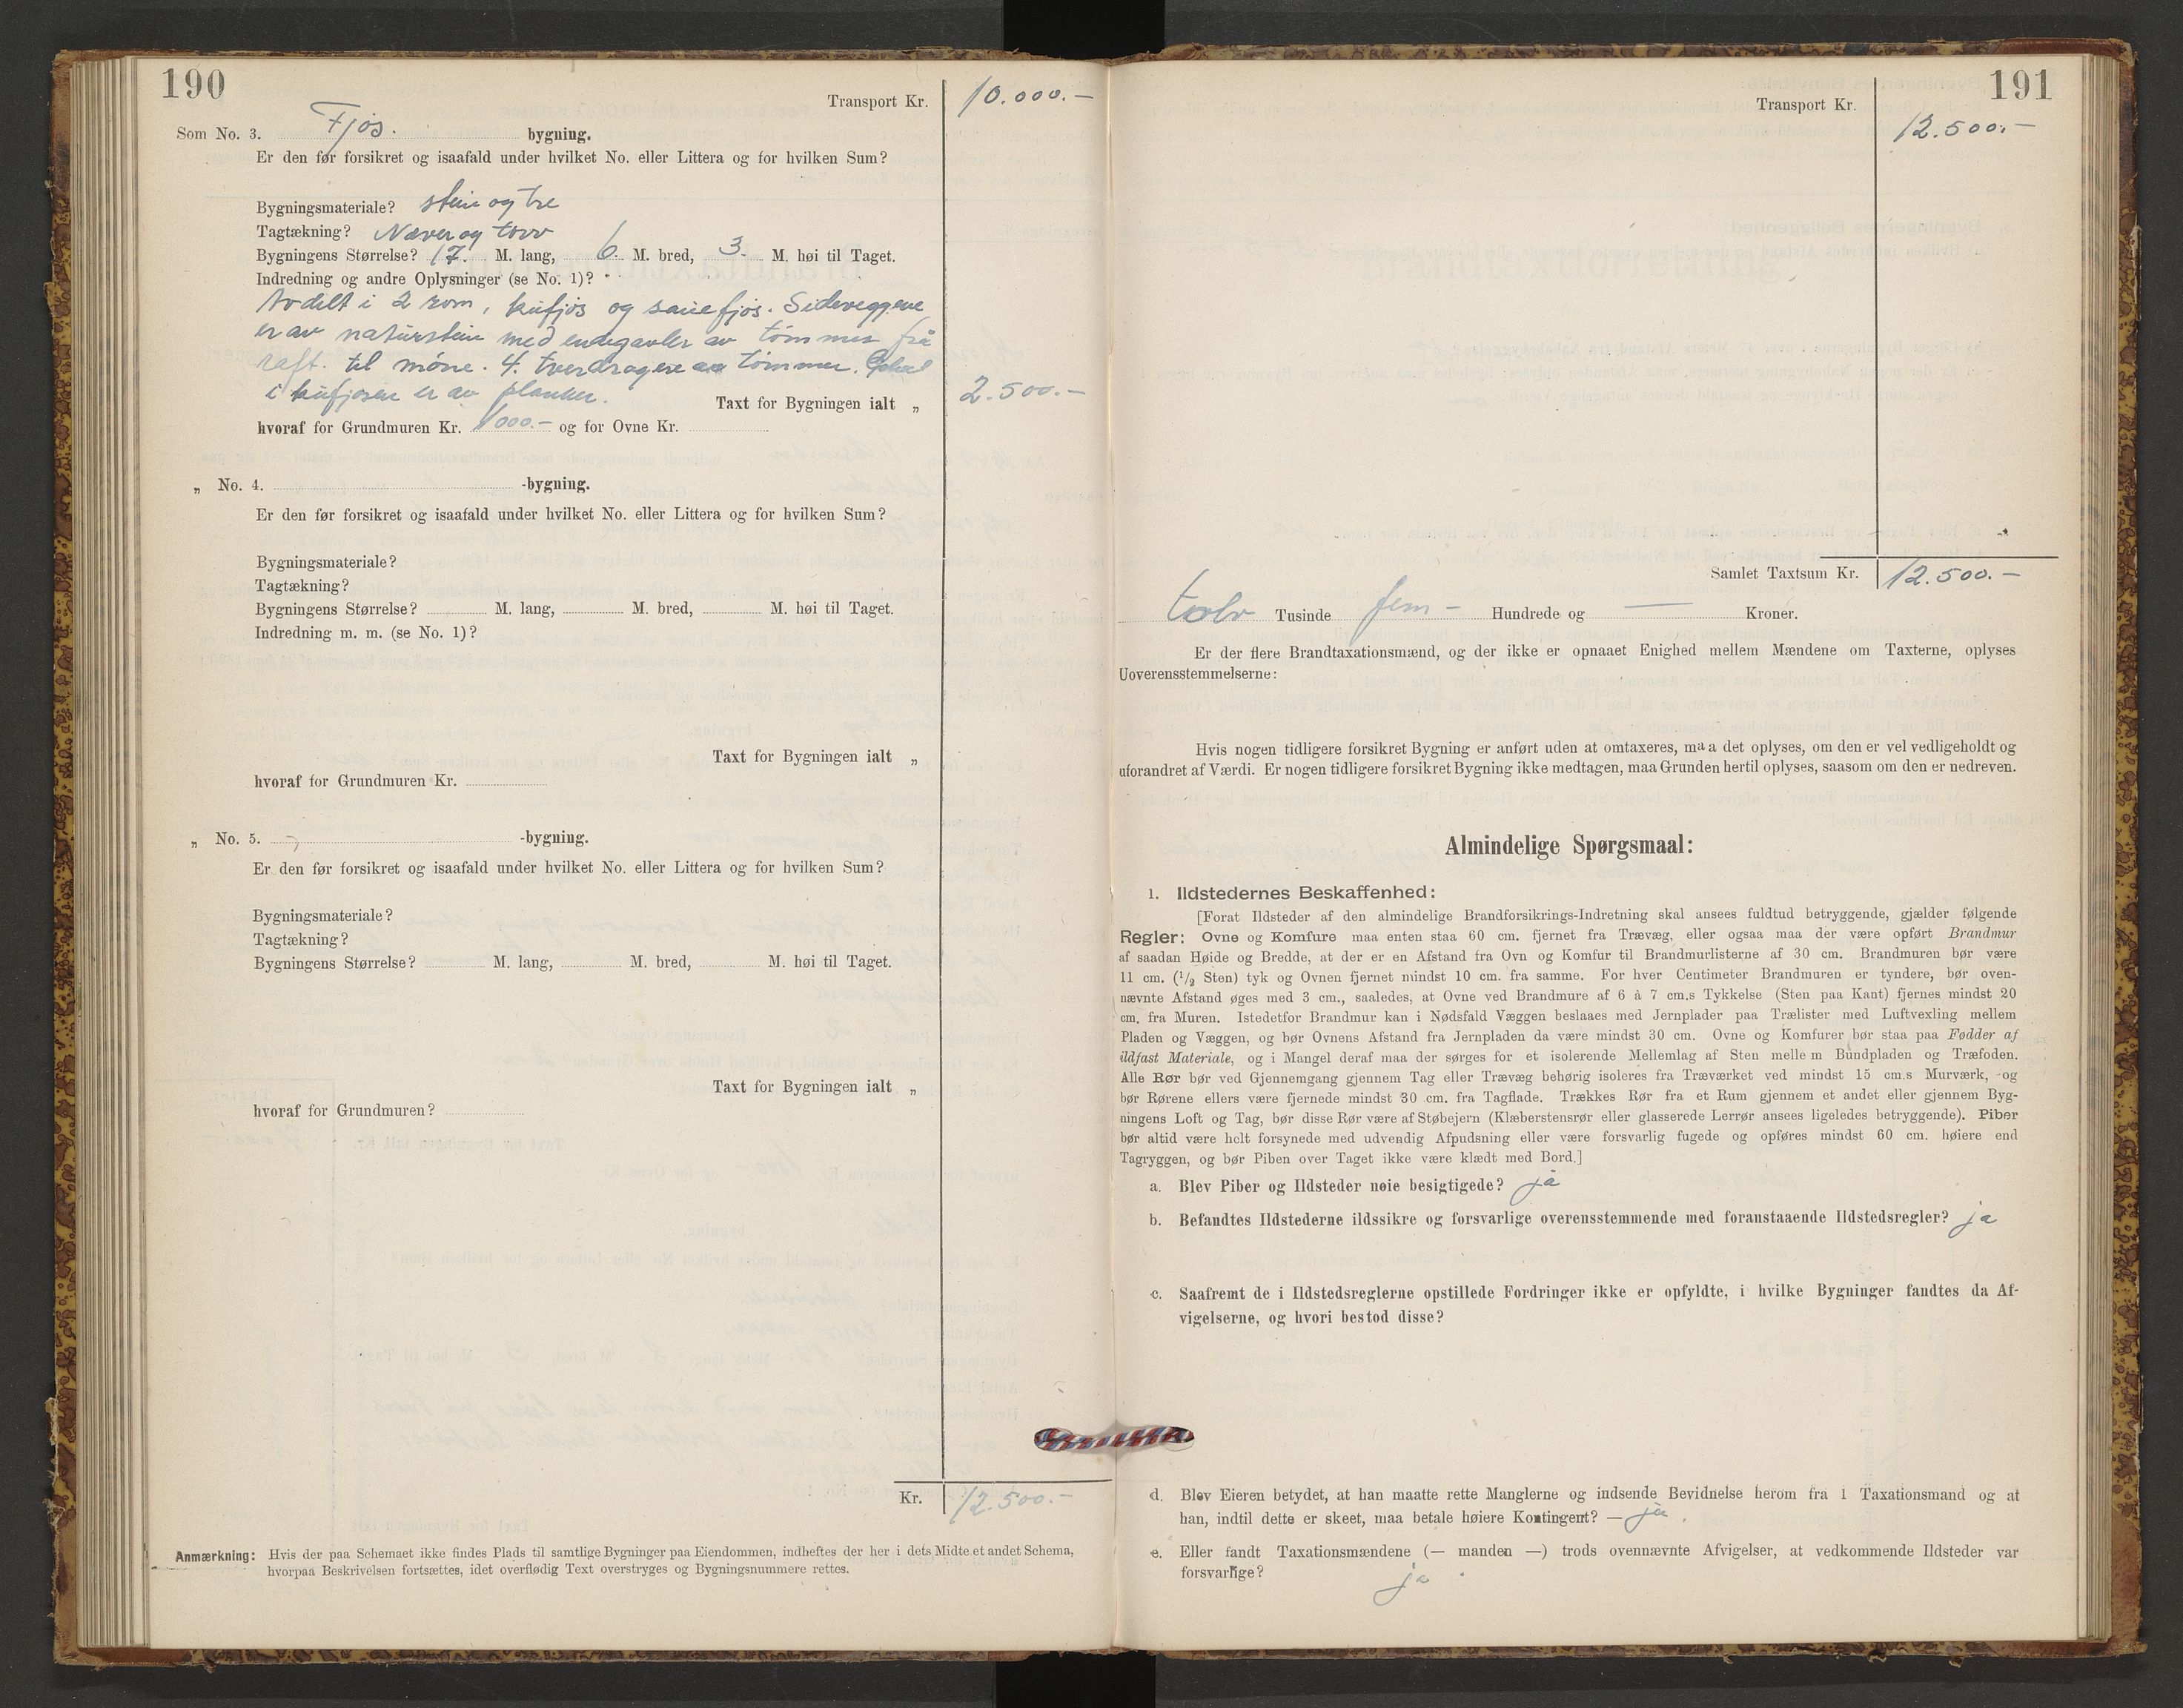 190
Transport Kr. 10.000.-
Som No. 3. Fjøs. bygning.
Er den før forsikret og isaafald under hvilket No. eller Littera og for hvilken Sum?
Bygningsmateriale? stein og tre
Tagtækning? Næver og torv
Bygningens Størrelse? 17. M. lang, 6. M. bred, 3. M. høi til Taget.
Indredning og andre Oplysninger (se No. 1)?
Avdelt i 2 rom, kufjøs og sauefjøs. Sideveggene
er av naturstein med endegavler av tømmer frå
raft. til møne. 4. tverdragere av tømmer.
i kufjøsen er av planker.
Taxt for Bygningen ialt „ 2.500.-
hvoraf for Grundmuren Kr. 1000.- og for Ovne Kr.
„ No. 4. -bygning.
Er den før forsikret og isaafald under hvilket No. eller Littera og for hvilken Sum?
Bygningsmateriale?
Tagtækning?
Bygningens Størrelse? M. lang, M. bred, M. høi til Taget.
Indredning m. m. (se No. 1)?
Taxt for Bygningen ialt „
hvoraf for Grundmuren Kr.
„ No. 5. -bygning.
Er den før forsikret og isaafald under hvilket No. eller Littera og for hvilken Sum?
Bygningsmateriale?
Tagtækning?
Bygningens Størrelse? M. lang, M. bred, M. høi til Taget.
Taxt for Bygningen ialt „
hvoraf for Grundmuren?
Kr. 12.500.-
Anmærkning: Hvis der paa Schemaet ikke findes Plads til samtlige Bygninger paa Eiendommen, indheftes der her i dets Midte et andet Schema,
hvorpaa Beskrivelsen fortsættes, idet overflødig Text overstryges og Bygningsnummere rettes.
191
Transport Kr. 12.500.-
Samlet Taxtsum Kr. 12.500.-
tolv Tusinde fem - Hundrede og — Kroner.
Er der flere Brandtaxationsmænd, og der ikke er opnaaet Enighed mellem Mændene om Taxterne, oplyses
Uoverensstemmelserne:
Hvis nogen tidligere forsikret Bygning er anført uden at omtaxeres, maa det oplyses, om den er vel vedligeholdt og
uforandret af Værdi. Er nogen tidligere forsikret Bygning ikke medtagen, maa Grunden hertil oplyses, saasom om den er nedreven.
Almindelige Spørgsmaal:
1. Ildstedernes Beskaffenhed:
[Forat Ildsteder af den almindelige Brandforsikrings-Indretning skal ansees fuldtud betryggende, gjælder følgende
Regler: Ovne og Komfure maa enten staa 60 cm. fjernet fra Trævæg, eller ogsaa maa der være opført Brandmur
af saadan Høide og Bredde, at der er en Afstand fra Ovn og Komfur til Brandmurlisterne af 30 cm. Brandmuren bør være
11 cm. (1/2 Sten) tyk og Ovnen fjernet mindst 10 cm. fra samme. For hver Centimeter Brandmuren er tyndere, bør oven-
nævnte Afstand øges med 3 cm., saaledes, at Ovne ved Brandmure af 6 à 7 cm.s Tykkelse (Sten paa Kant) fjernes mindst 20
cm. fra Muren. Istedetfor Brandmur kan i Nødsfald Væggen beslaaes med Jernplader paa Trælister med Luftvexling mellem
Pladen og Væggen, og bør Ovnens Afstand fra Jernpladen da være mindst 30 cm. Ovne og Komfurer bør staa paa Fødder af
ildfast Materiale, og i Mangel deraf maa der sørges for et isolerende Mellemlag af Sten mellem Bundpladen og Træfoden.
Alle Rør bør ved Gjennemgang gjennem Tag eller Trævæg behørig isoleres fra Træværket ved mindst 15 cm.s Murværk, og
bør Rørene ellers være fjernede mindst 30 cm. fra Tagflade. Trækkes Rør fra et Rum gjennem et andet eller gjennem Byg-
ningens Loft og Tag, bør disse Rør være af Støbejern (Klæberstensrør eller glasserede Lerrør ansees ligeledes betryggende). Piber
bør altid være helt forsynede med udvendig Afpudsning eller være forsvarlig fugede og opføres mindst 60 cm. høiere end
Tagryggen, og bør Piben over Taget ikke være klædt med Bord.]
a. Blev Piber og Ildsteder nøie besigtigede? ja
b. Befandtes Ildstederne ildssikre og forsvarlige overensstemmende med foranstaaende Ildstedsregler? ja
c. Saafremt de i Ildstedsreglerne opstillede Fordringer ikke er opfyldte, i hvilke Bygninger fandtes da Af-
vigelserne, og hvori bestod disse?
d. Blev Eieren betydet, at han maatte rette Manglerne og indsende Bevidnelse herom fra 1 Taxationsmand og at
han, indtil dette er skeet, maa betale høiere Kontingent? — ja.
e. Eller fandt Taxationsmændene (— manden —) trods ovennævnte Afvigelser, at vedkommende Ildsteder var
forsvarlige? ja.